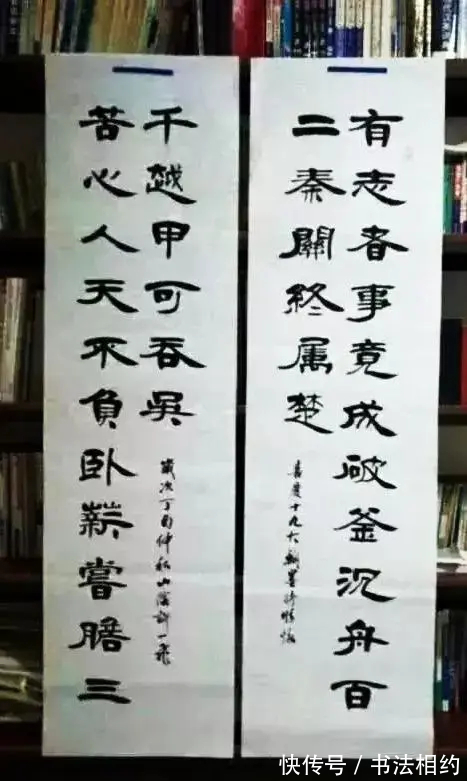 有志者事竟成破釜沉舟百
二秦關終属楚
喜慶十九大翰墨
苦心人天不負卧薪嘗膽三
千越甲可吞吳
歲次丁酉仲秋山
許一飛
快传号 / 书法相约